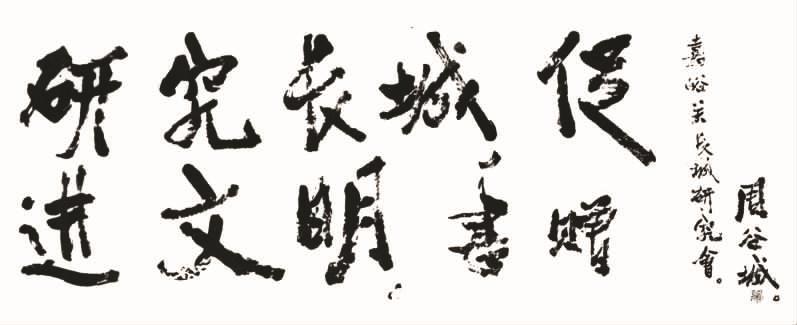 研究長城 促
进文明。書赠
嘉峪关长城研究會。
周谷城。